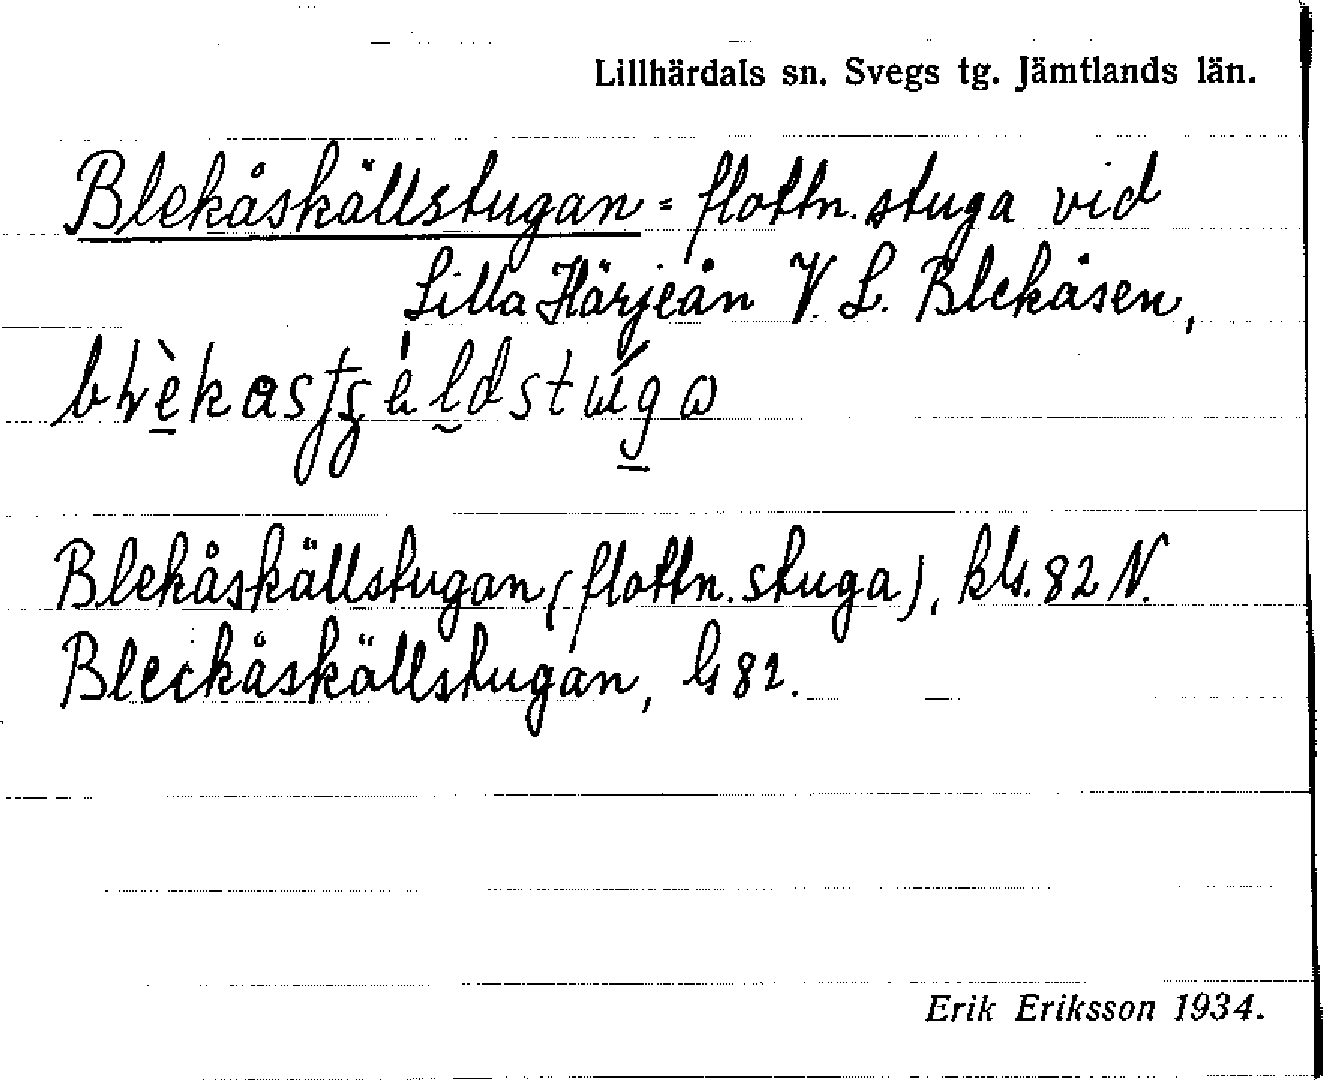 Lillhärdals sn. Svegs tg. Jämtlands län.
Blekåskällstugan = flottn. stuga vid
Lilla Härjeån V. L. Blekåsen,
Blekåskällstugan (flottn. stuga), kls. 82 N.
Bleckåskällstugan, ls 82.
Erik Eriksson 1934.